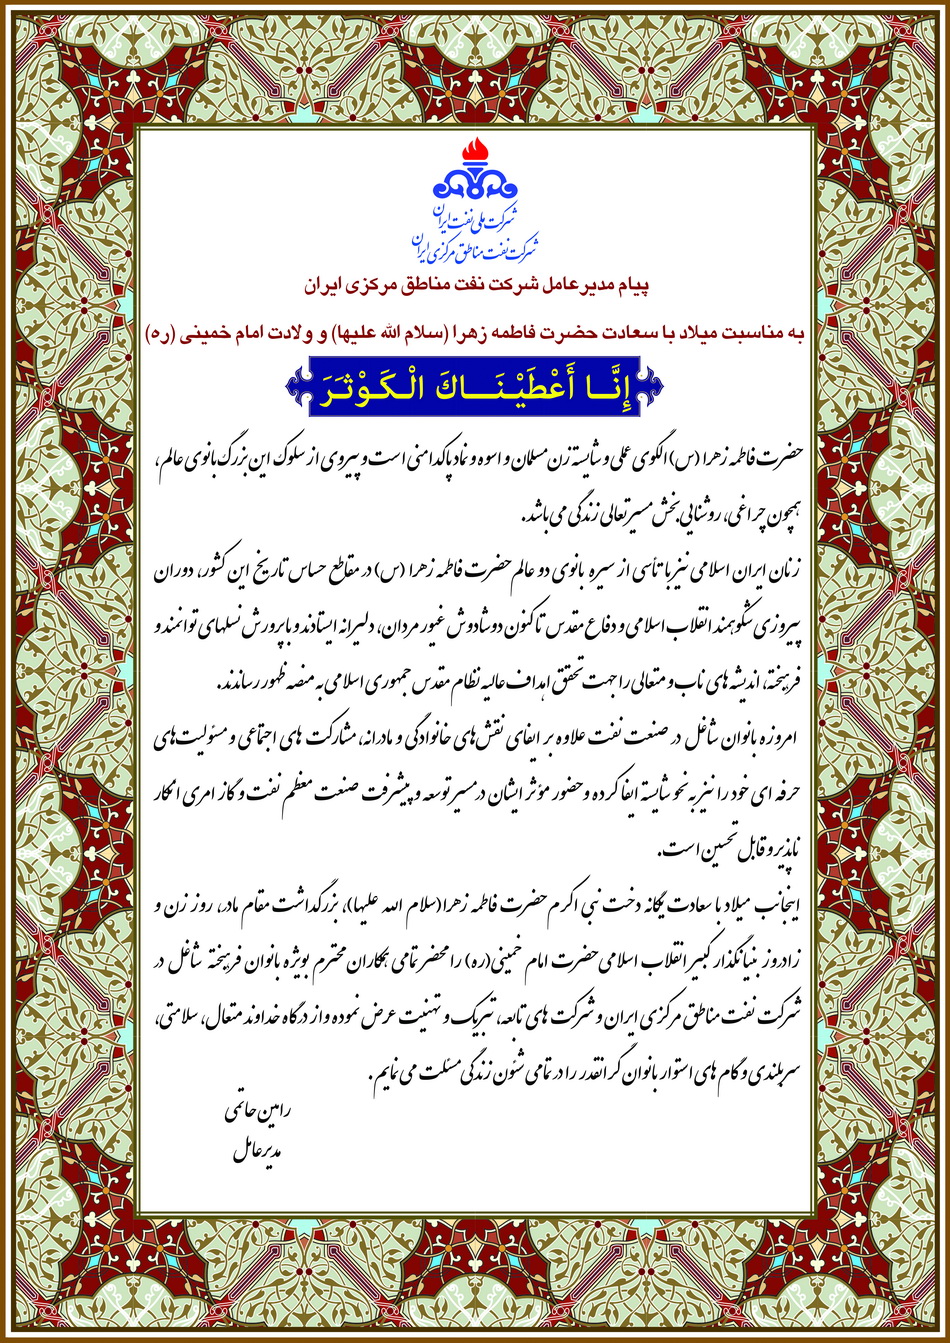 شرکت ملی نفت ایران
شرکت نفت مناطق مرکزی ایران
پیام مدیرعامل شرکت نفت مناطق مرکزی ایران
به مناسبت میلاد با سعادت حضرت فاطمه زهرا (سلام الله علیها) و ولادت امام خمینی (ره)
إِنَّا أَعْطَيْنَاكَ الْكَوْثَرَ
حضرت فاطمه زهرا (س) الگوی عملی و شایسته زن مسلمان و اسوه و نماد پاکدامنی است و پیروی از سلوک این بزرگ بانوی عالم،
همچون چراغی، روشنایی بخش مسیر تعالی زندگی می باشد.
زنان ایران اسلامی نیز با تأسی از سیره بانوی دو عالم حضرت فاطمه زهرا (س) در مقاطع حساس تاریخ این کشور، دوران
پیروزی شکوهمند انقلاب اسلامی و دفاع مقدس تاکنون دوشادوش غیور مردان، دلیرانه ایستادند و با پرورش نسلهای توانمند و
فرهیخته، اندیشه های ناب و متعالی را جهت تحقق اهداف عالیه نظام مقدس جمهوری اسلامی به منصه ظهور رساندند.
امروزه بانوان شاغل در صنعت نفت علاوه بر ایفای نقش های خانوادگی و مادرانه، مشارکت های اجتماعی و مسئولیت های
حرفه ای خود را نیز به نحو شایسته ایفا کرده و حضور مؤثر ایشان در مسیر توسعه و پیشرفت صنعت معظم نفت و گاز امری انکار
ناپذیر و قابل تحسین است.
اینجانب میلاد با سعادت یگانه دخت نبی اکرم حضرت فاطمه زهرا(سلام الله علیها)، بزرگداشت مقام مادر، روز زن و
زادروز بنیانگذار کبیر انقلاب اسلامی حضرت امام خمینی(ره) را محضر تمامی همکاران محترم بویژه بانوان فرهیخته شاغل در
شرکت نفت مناطق مرکزی ایران و شرکت های تابعه، تبریک و تهنیت عرض نموده و از درگاه خداوند متعال، سلامتی،
سربلندی و گام های استوار بانوان گرانقدر را در تمامی شئون زندگی مسئلت می نمایم.
رامین حاتمی
مدیرعامل